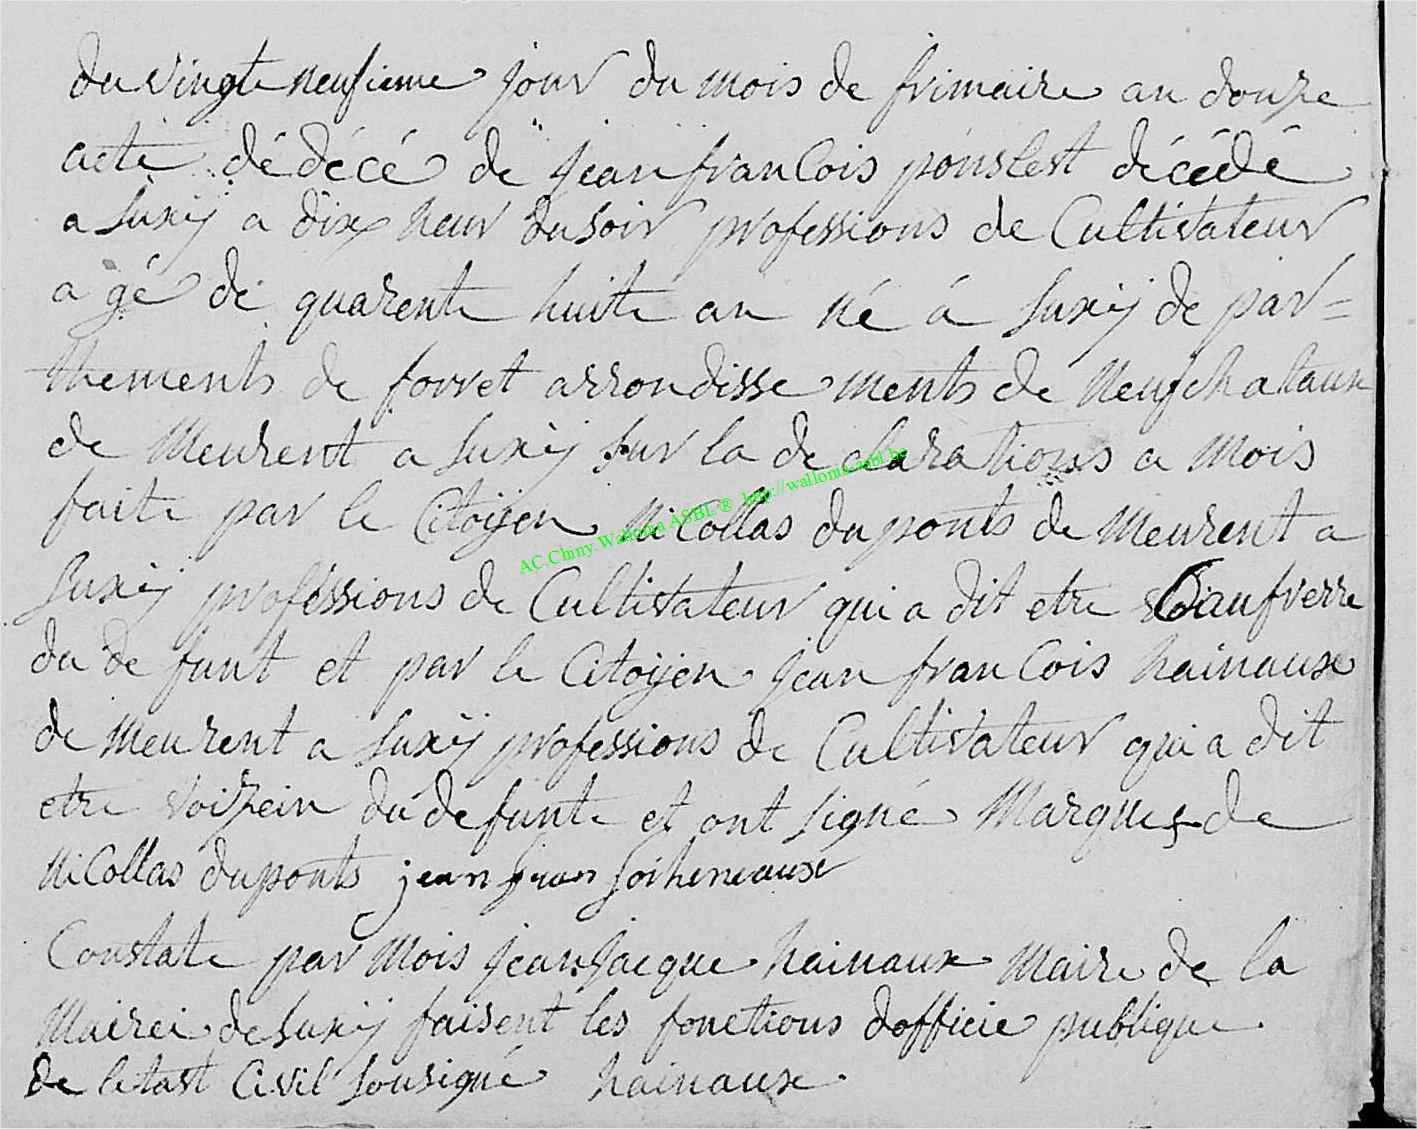 du vingte neufieme jour du mois de frimaire an douze
acte dé décé de jean francois ponslest décédé
a Suxÿ a dix heur du soir professions de Cultivateur
a gé de quarente huite an né á Suxÿ de par=
thements de forret arrondisse ments de Neufchataux
de Meurent a Suxÿ sur la de clarations a mois
faite par le Citoÿen Nicollas duponts de Meurent a
Suxÿ professions de Cultivateur qui a dit etre Baufrerre
du de funt et par le Citoÿen jean francois hainaux
de Meurent a Suxÿ professions de Cultivateur qui a dit
etre voizein du defunte et ont signé Marques de
Nicollas duponts jean fran soiheneaux
Constate par Mois jean jacque hainaux Maire de la
Mairei de Suxÿ faisent les fonctions dofficie publique
de letast Civil Sousigné hainaux
AC.Chiny.Wallonia ASBL® http://wallonia-asbl.be